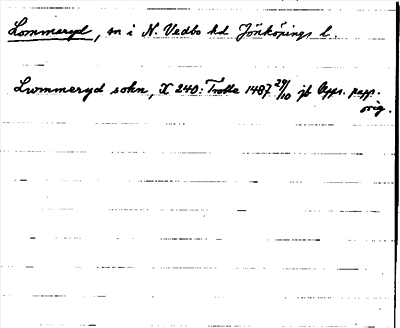 Lommaryd, sn i N. Vedbo hd Jönköpings l.
Lwmmeryd sokn, X 240: Trolle 1487 29/10 jt Upps. papp.
orig.